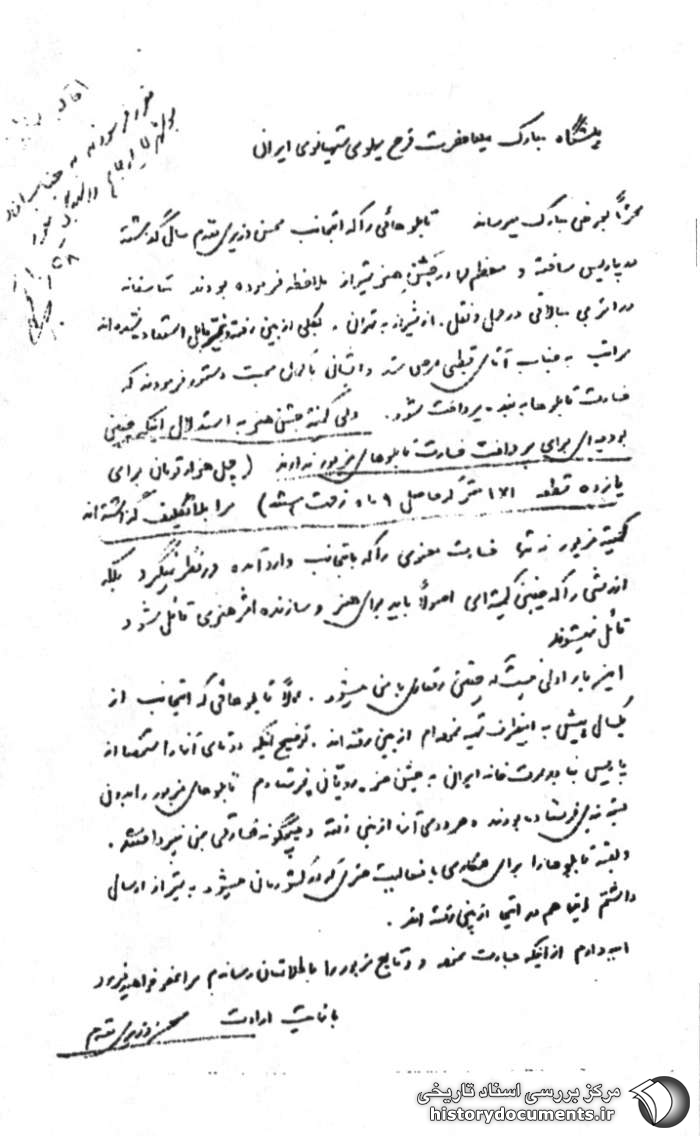 پیشگاه مبارک علیاحضرت فرح پهلوی شهبانوی ایران
محترماً بعرض مبارک میرساند تابلوهائی را که اینجانب محسن وزیری مقدم سال گذشته
در پاریس ساخته و معظم لها در جشن هنر شیراز ملاحظه فرموده بودند متاسفانه
در اثر بی مبالاتی در حمل و نقل. از شیراز به تهران. بکلی از بین رفته و غیر قابل استفاده شده‌اند
مراتب به جناب آقای قطبی عرض شد و ایشان با کمال محبت دستور فرمودند که
خسارت تابلوها به بنده پرداخت شود. ولی کمیته جشن هنر به استدلال اینکه چنین
بودجه‌ای برای پرداخت خسارت تابلوهای مزبور ندارند (چهل هزار تومان برای
یازده قطعه ۱×۱ متر که حاصل ۹ ماه زحمت است) مرا بلاتکلیف گذاشته‌اند
کمیته مزبور نه تنها خسارت معنوی را که باینجانب وارد آمده در نظر نمیگیرد بلکه
ارزشی را که چنین کمیته‌ای اصولاً باید برای هنر و سازنده اثر هنری قائل شود
قائل نمیشوند
این بار اولی نیست که چنین رفتاری با من میشود. عملاً تابلوهائی که اینجانب از
یکسال پیش به اینطرف تهیه نموده‌ام از بین رفته اند. توضیح اینکه دو تای آنها را شخصاً از
پاریس بنا به دعوت خانه ایران به جشن هنر فرستادم تابلوهای مزبور را بدون
بسته بندی فرستاده بودند و هر دوی آن از بین رفته و هیچگونه خسارتی بمن نپرداختند.
و بقیه تابلوها را برای همکاری با فعالیت هنری که در کشورمان میشود به شیراز ارسال
داشتم اینها هم در اینجا از بین رفته اند.
امیدوارم از اینکه جسارت نموده و وقایع مزبور را باطلاعتان رساندم مرا عفو خواهید فرمود
با نهایت ارادت محسن وزیری مقدم
مرکز بررسی اسناد تاریخی
historydocuments.ir